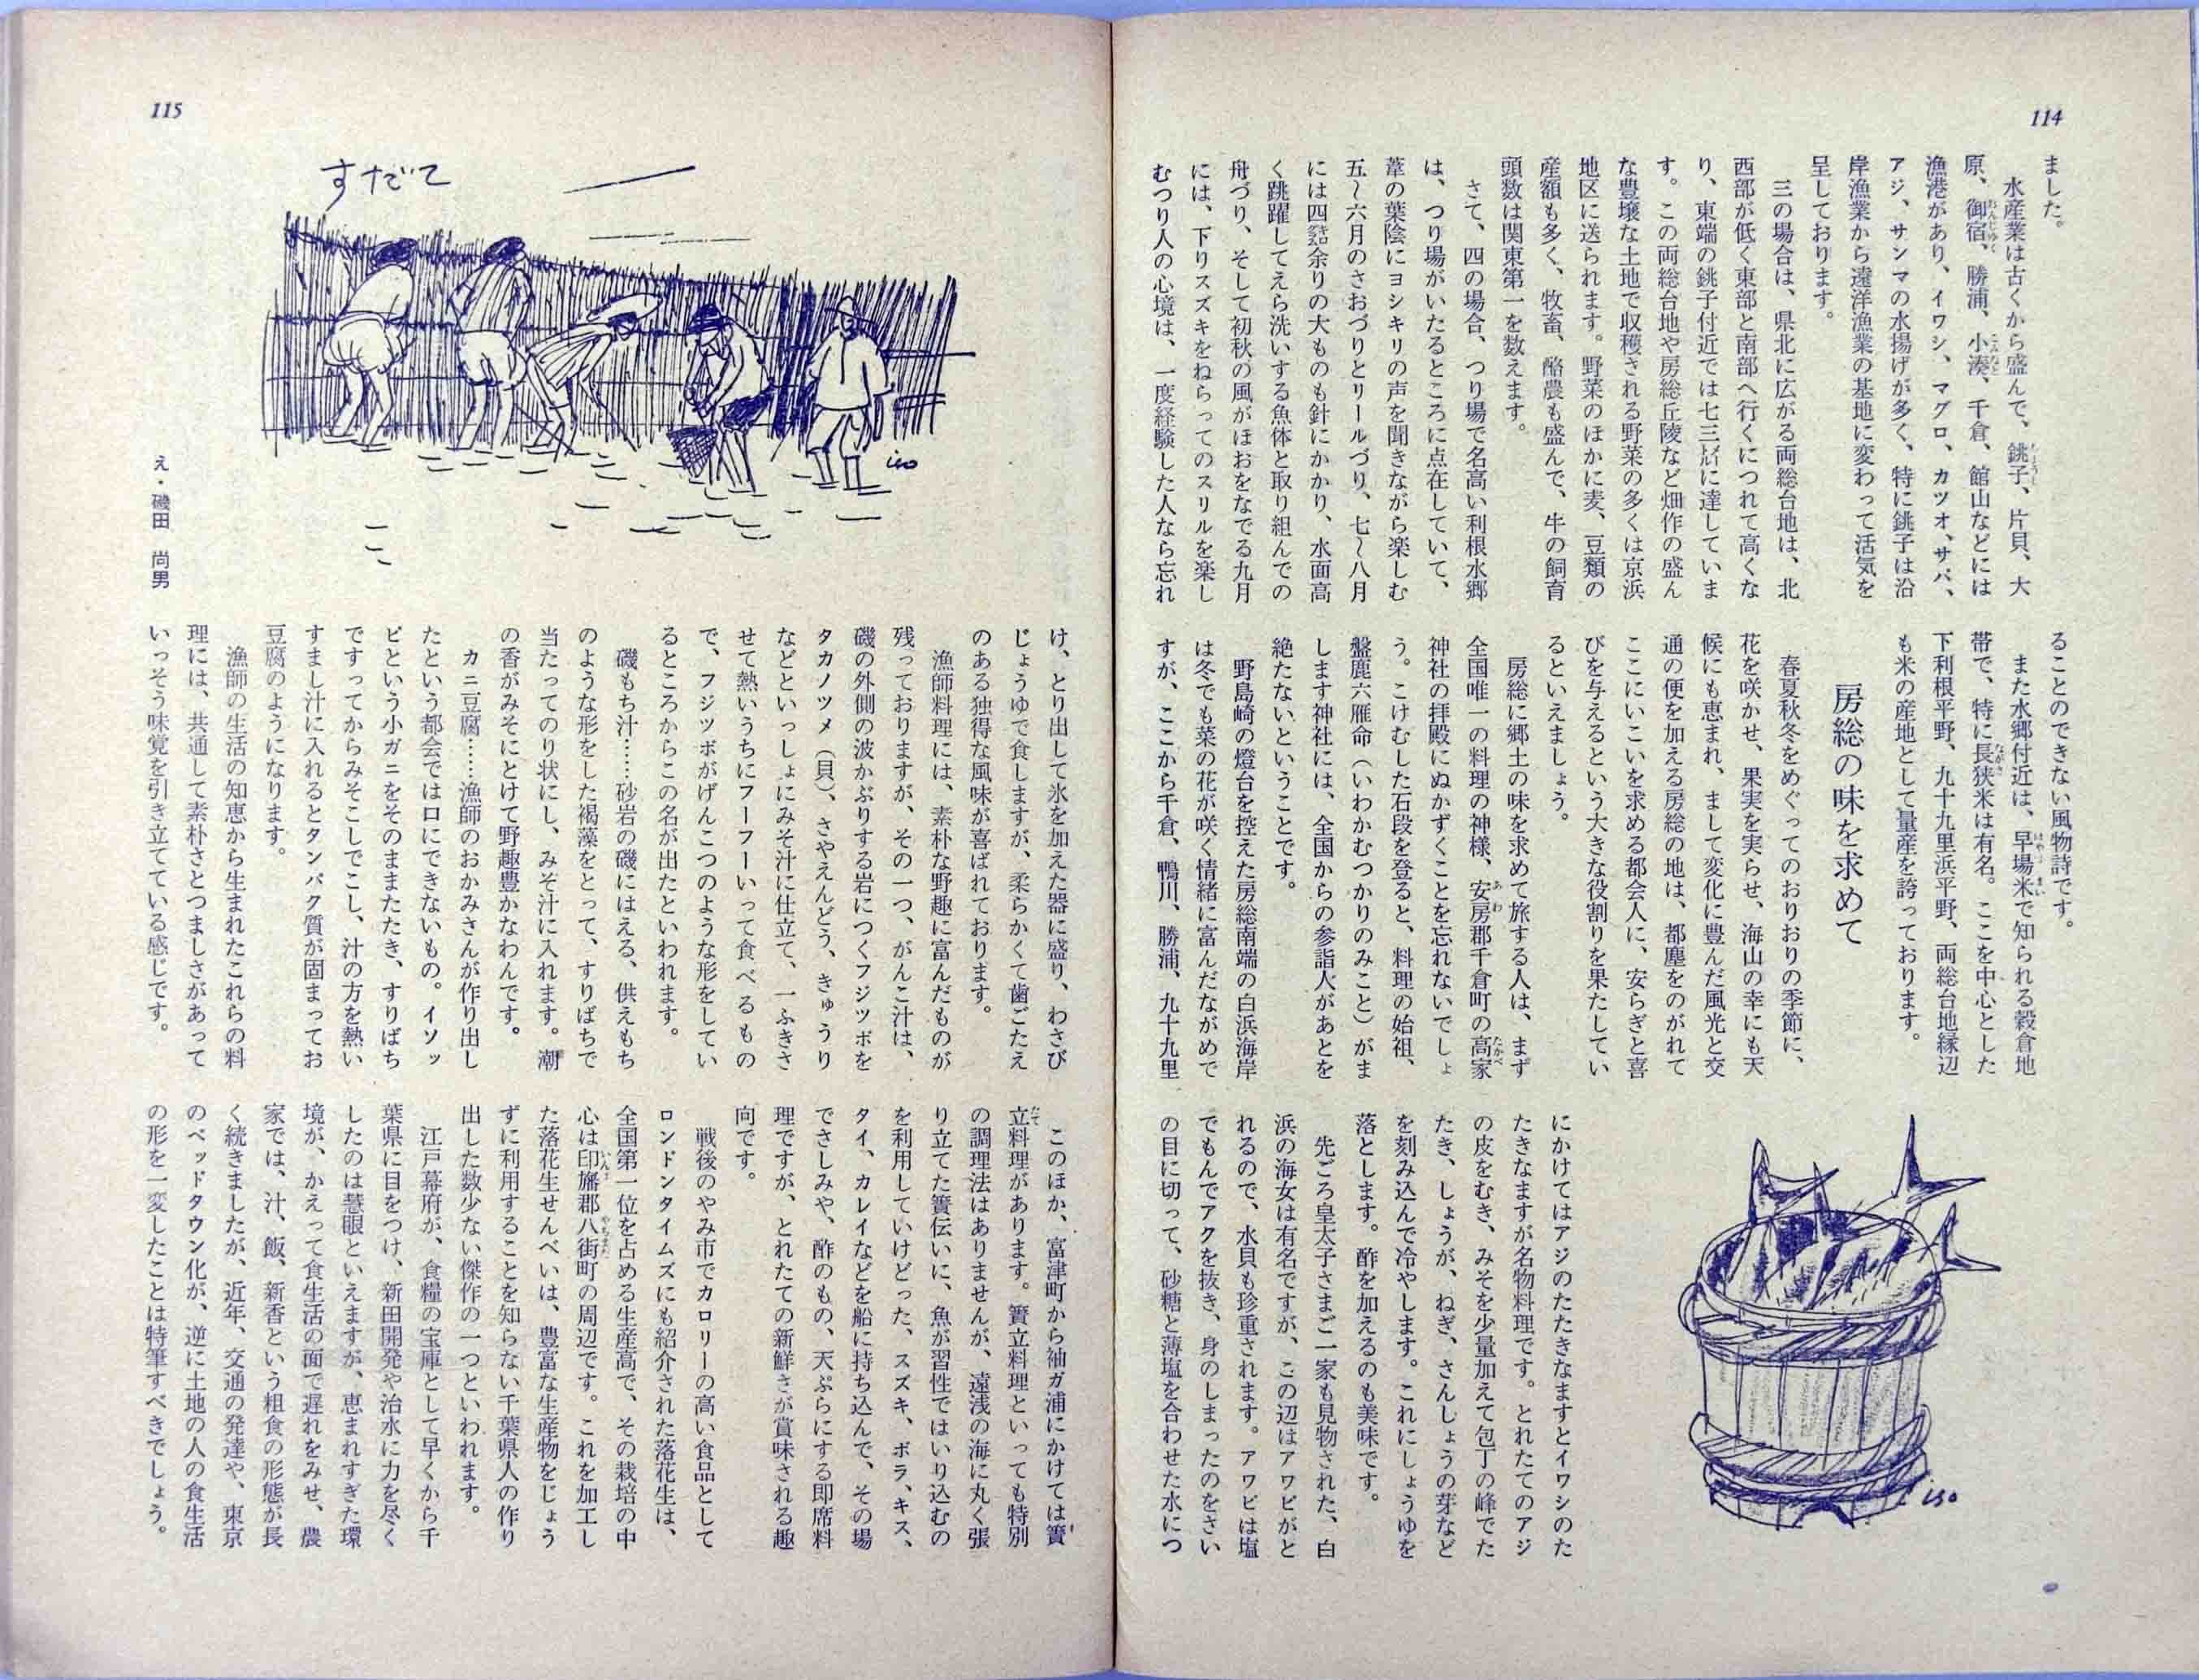 114
ました。
水産業は古くから盛んで、銚子、片貝、大
原、御宿、勝浦、小湊、千倉、館山などには
漁港があり、イワシ、マグロ、カツオ、サバ、
アジ、サンマの水揚げが多く、特に銚子は沿
岸漁業から遠洋漁業の基地に変わって活気を
呈しております。
三の場合は、県北に広がる両総台地は、北
西部が低く東部と南部へ行くにつれて高くな
り、東端の銚子付近では七三㍍に達していま
す。この両総台地や房総丘陵など畑作の盛ん
な豊壌な土地で収穫される野菜の多くは京浜
地区に送られます。野菜のほかに麦、豆類の
産額も多く、牧畜、酪農も盛んで、牛の飼育
頭数は関東第一を数えます。
さて、四の場合、つり場で名高い利根水郷
は、つり場がいたるところに点在していて、
葦の葉陰にヨシキリの声を聞きながら楽しむ
五〜六月のさおづりとリールづり、七〜八月
には四㌔余りの大ものも針にかかり、水面高
く跳躍してえら洗いする魚体と取り組んでの
舟づり、そして初秋の風がほおをなでる九月
には、下りスズキをねらってのスリルを楽し
むつり人の心境は、一度経験した人なら忘れ
ることのできない風物詩です。
また水郷付近は、早場米で知られる穀倉地
帯で、特に長狭米は有名。ここを中心とした
下利根平野、九十九里浜平野、両総台地縁辺
も米の産地として量産を誇っております。
房総の味を求めて
春夏秋冬をめぐってのおりおりの季節に、
花を咲かせ、果実を実らせ、海山の幸にも天
候にも恵まれ、まして変化に豊んだ風光と交
通の便を加える房総の地は、都塵をのがれて
ここにいこいを求める都会人に、安らぎと喜
びを与えるという大きな役割りを果たしてい
るといえましょう。
房総に郷土の味を求めて旅する人は、まず
全国唯一の料理の神様、安房郡千倉町の高家
神社の拝殿にぬかずくことを忘れないでしょ
う。こけむした石段を登ると、料理の始祖、
盤鹿六雁命（いわかむつかりのみこと）がま
します神社には、全国からの参詣人があとを
絶たないということです。
野島崎の燈台を控えた房総南端の白浜海岸
は冬でも菜の花が咲く情緒に富んだながめで
すが、ここから千倉、鴨川、勝浦、九十九里
にかけてはアジのたたきなますとイワシのた
たきなますが名物料理です。とれたてのアジ
の皮をむき、みそを少量加えて包丁の峰でた
たき、しょうが、ねぎ、さんしょうの芽など
を刻み込んで冷やします。これにしょうゆを
落とします。酢を加えるのも美味です。
先ごろ皇太子さまご一家も見物された、白
浜の海女は有名ですが、この辺はアワビがと
れるので、水貝も珍重されます。アワビは塩
でもんでアクを抜き、身のしまったのをさい
の目に切って、砂糖と薄塩を合わせた水につ
iso
115
すだて
iso
え・磯田 尚男
け、とり出して氷を加えた器に盛り、わさび
じょうゆで食しますが、柔らかくて歯ごたえ
のある独得な風味が喜ばれております。
漁師料理には、素朴な野趣に富んだものが
残っておりますが、その一つ、がんこ汁は、
磯の外側の波かぶりする岩につくフジツボを
タカノツメ（貝）、さやえんどう、きゅうり
などといっしょにみそ汁に仕立て、一ふきさ
せて熱いうちにフーフーいって食べるもの
で、フジツボがげんこつのような形をしてい
るところからこの名が出たといわれます。
磯もち汁……砂岩の磯にはえる、供えもち
のような形をした褐藻をとって、すりばちで
当たってのり状にし、みそ汁に入れます。潮
の香がみそにとけて野趣豊かなわんです。
カニ豆腐……漁師のおかみさんが作り出し
たという都会では口にできないもの。イソッ
ピという小ガニをそのままたたき、すりばち
ですってからみそこしでこし、汁の方を熱い
すまし汁に入れるとタンパク質が固まってお
豆腐のようになります。
漁師の生活の知恵から生まれたこれらの料
理には、共通して素朴さとつましさがあって
いっそう味覚を引き立てている感じです。
このほか、富津町から袖ガ浦にかけては簀
立料理があります。簀立料理といっても特別
の調理法はありませんが、遠浅の海に丸く張
り立てた簀伝いに、魚が習性ではいり込むの
を利用していけどった、スズキ、ボラ、キス、
タイ、カレイなどを船に持ち込んで、その場
でさしみや、酢のもの、天ぷらにする即席料
理ですが、とれたての新鮮さが賞味される趣
向です。
戦後のやみ市でカロリーの高い食品として
ロンドンタイムズにも紹介された落花生は、
全国第一位を占める生産高で、その栽培の中
心は印旛郡八街町の周辺です。これを加工し
た落花生せんべいは、豊富な生産物をじょう
ずに利用することを知らない千葉県人の作り
出した数少ない傑作の一つといわれます。
江戸幕府が、食糧の宝庫として早くから千
葉県に目をつけ、新田開発や治水に力を尽く
したのは慧眼といえますが、恵まれすぎた環
境が、かえって食生活の面で遅れをみせ、農
家では、汁、飯、新香という粗食の形態が長
く続きましたが、近年、交通の発達や、東京
のベッドタウン化が、逆に土地の人の食生活
の形を一変したことは特筆すべきでしょう。